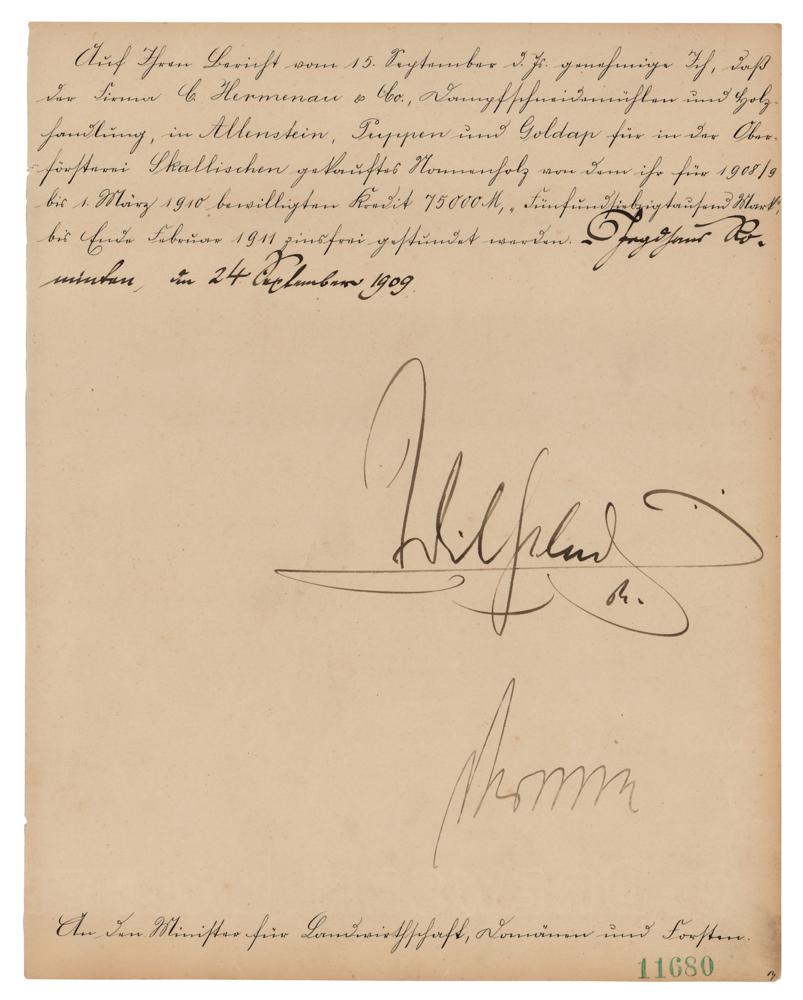 Auf Ihren Bericht vom 15. September d. Js. genehmige Ich, daß
der Firma C. Hermenau & Co., Dampfschneidemühlen und Holz-
handlung, in Allenstein, Puppen und Goldap für in der Ober-
försterei Skallischen gekauftes Nonnenholz von dem ihr für 1908/9
bis 1. März 1910 bewilligten Kredit 75000 M, „Fünfundsiebzigtausend Mark“,
bis Ende Februar 1911 zinsfrei gestundet werden. Jagdhaus Ro-
minten, den 24 September 1909
Wilhelm
R.
An den Minister für Landwirthschaft, Domänen und Forsten.
11680